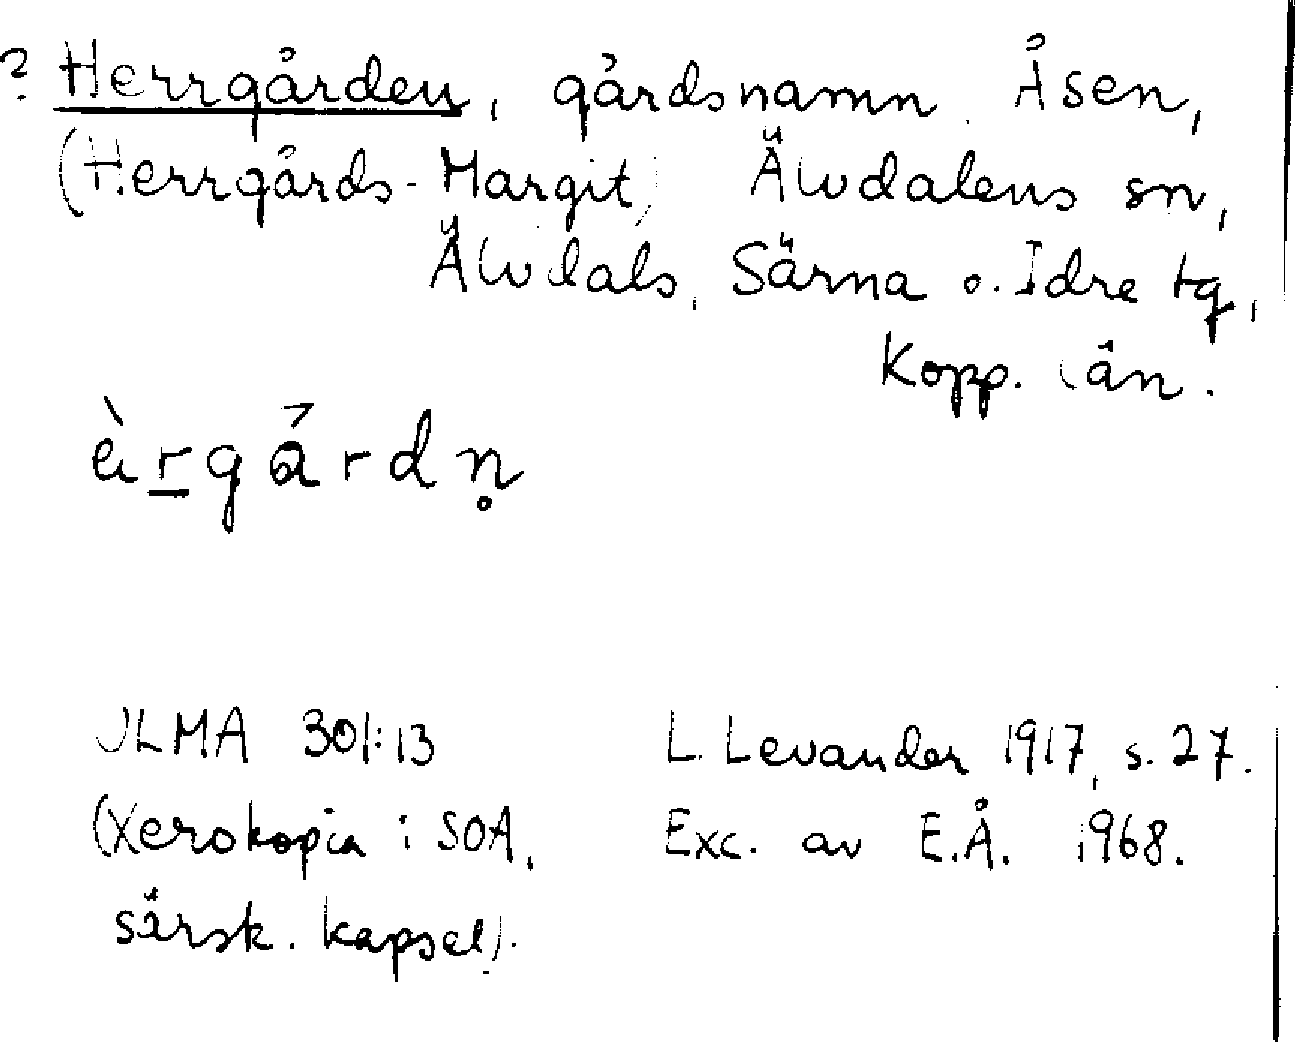 ? Herrgården, gårdsnamn, Åsen,
(Herrgårds-Margit) Älvdalens sn,
Älvdals, Särna o. Idre tg,
Kopp. län.
èrgárdn̥
ULMA 301:13 L. Levander 1917, s. 27.
(Xerokopia i SOA, Exc. av E.Å. 1968.
särsk. kapsel).